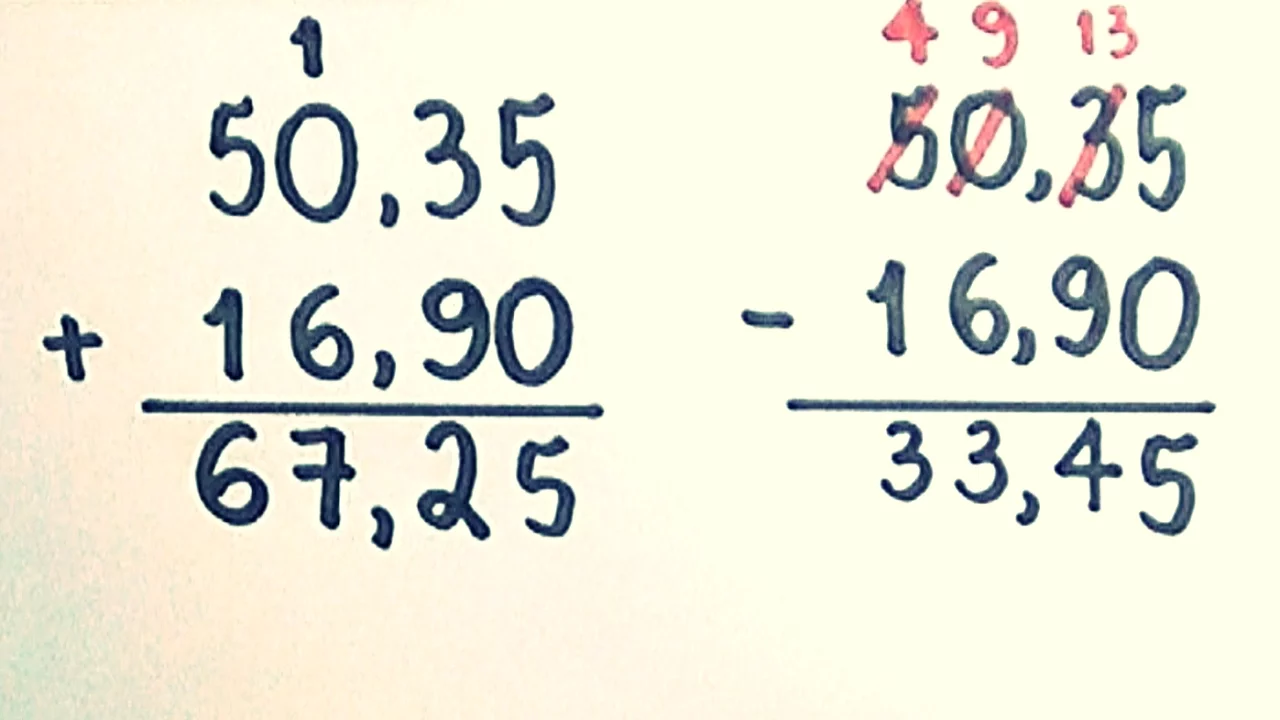 1
50,35
+ 16,90
67,25
4 9 13
50,35
- 16,90
33,45